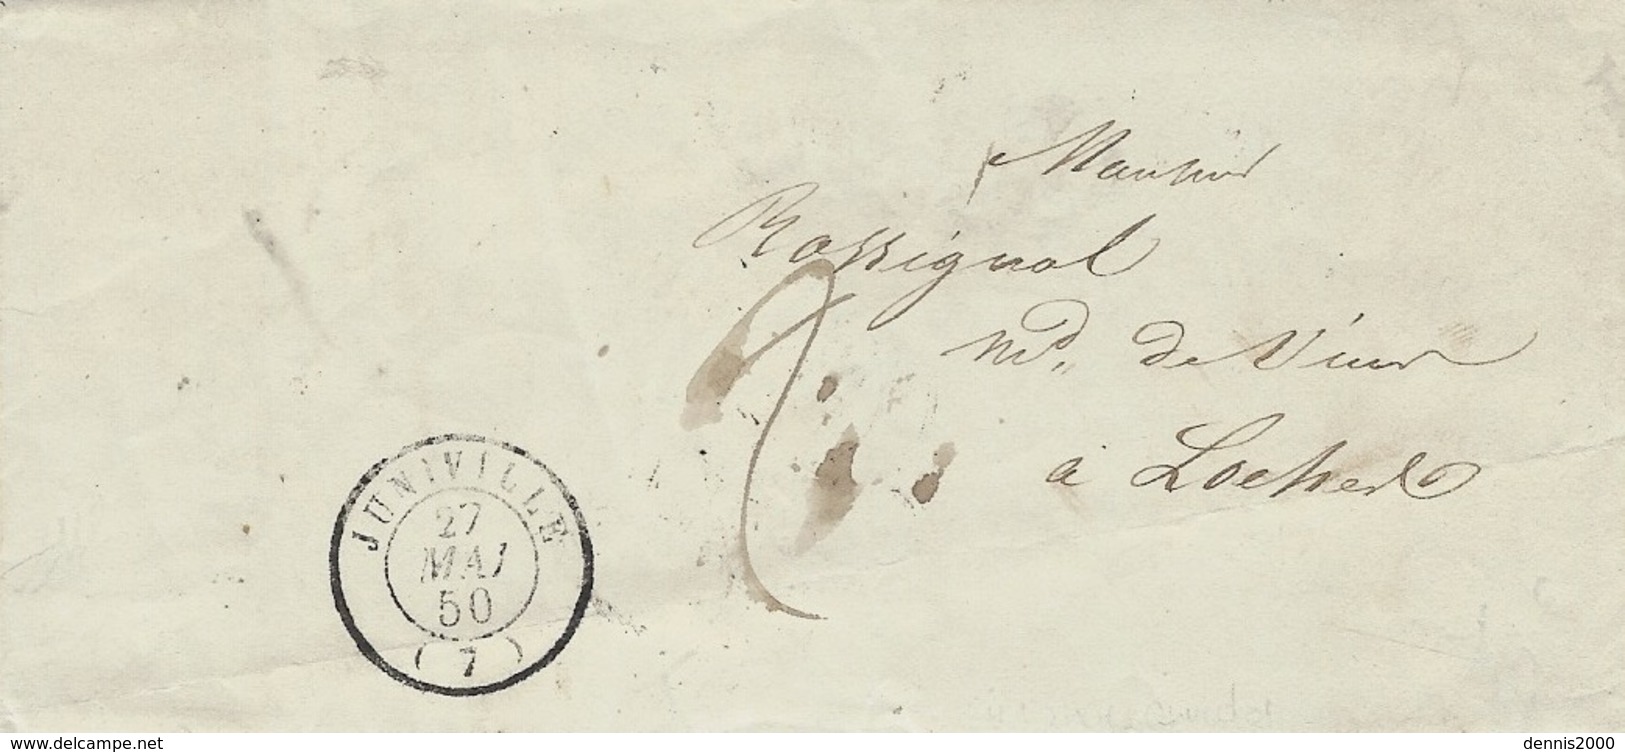 Monsieur
Rossignol
Md. de Vins
à Loches
JUNIVILLE
27
MAI
50
(7)
www.delcampe.net
dennis2000